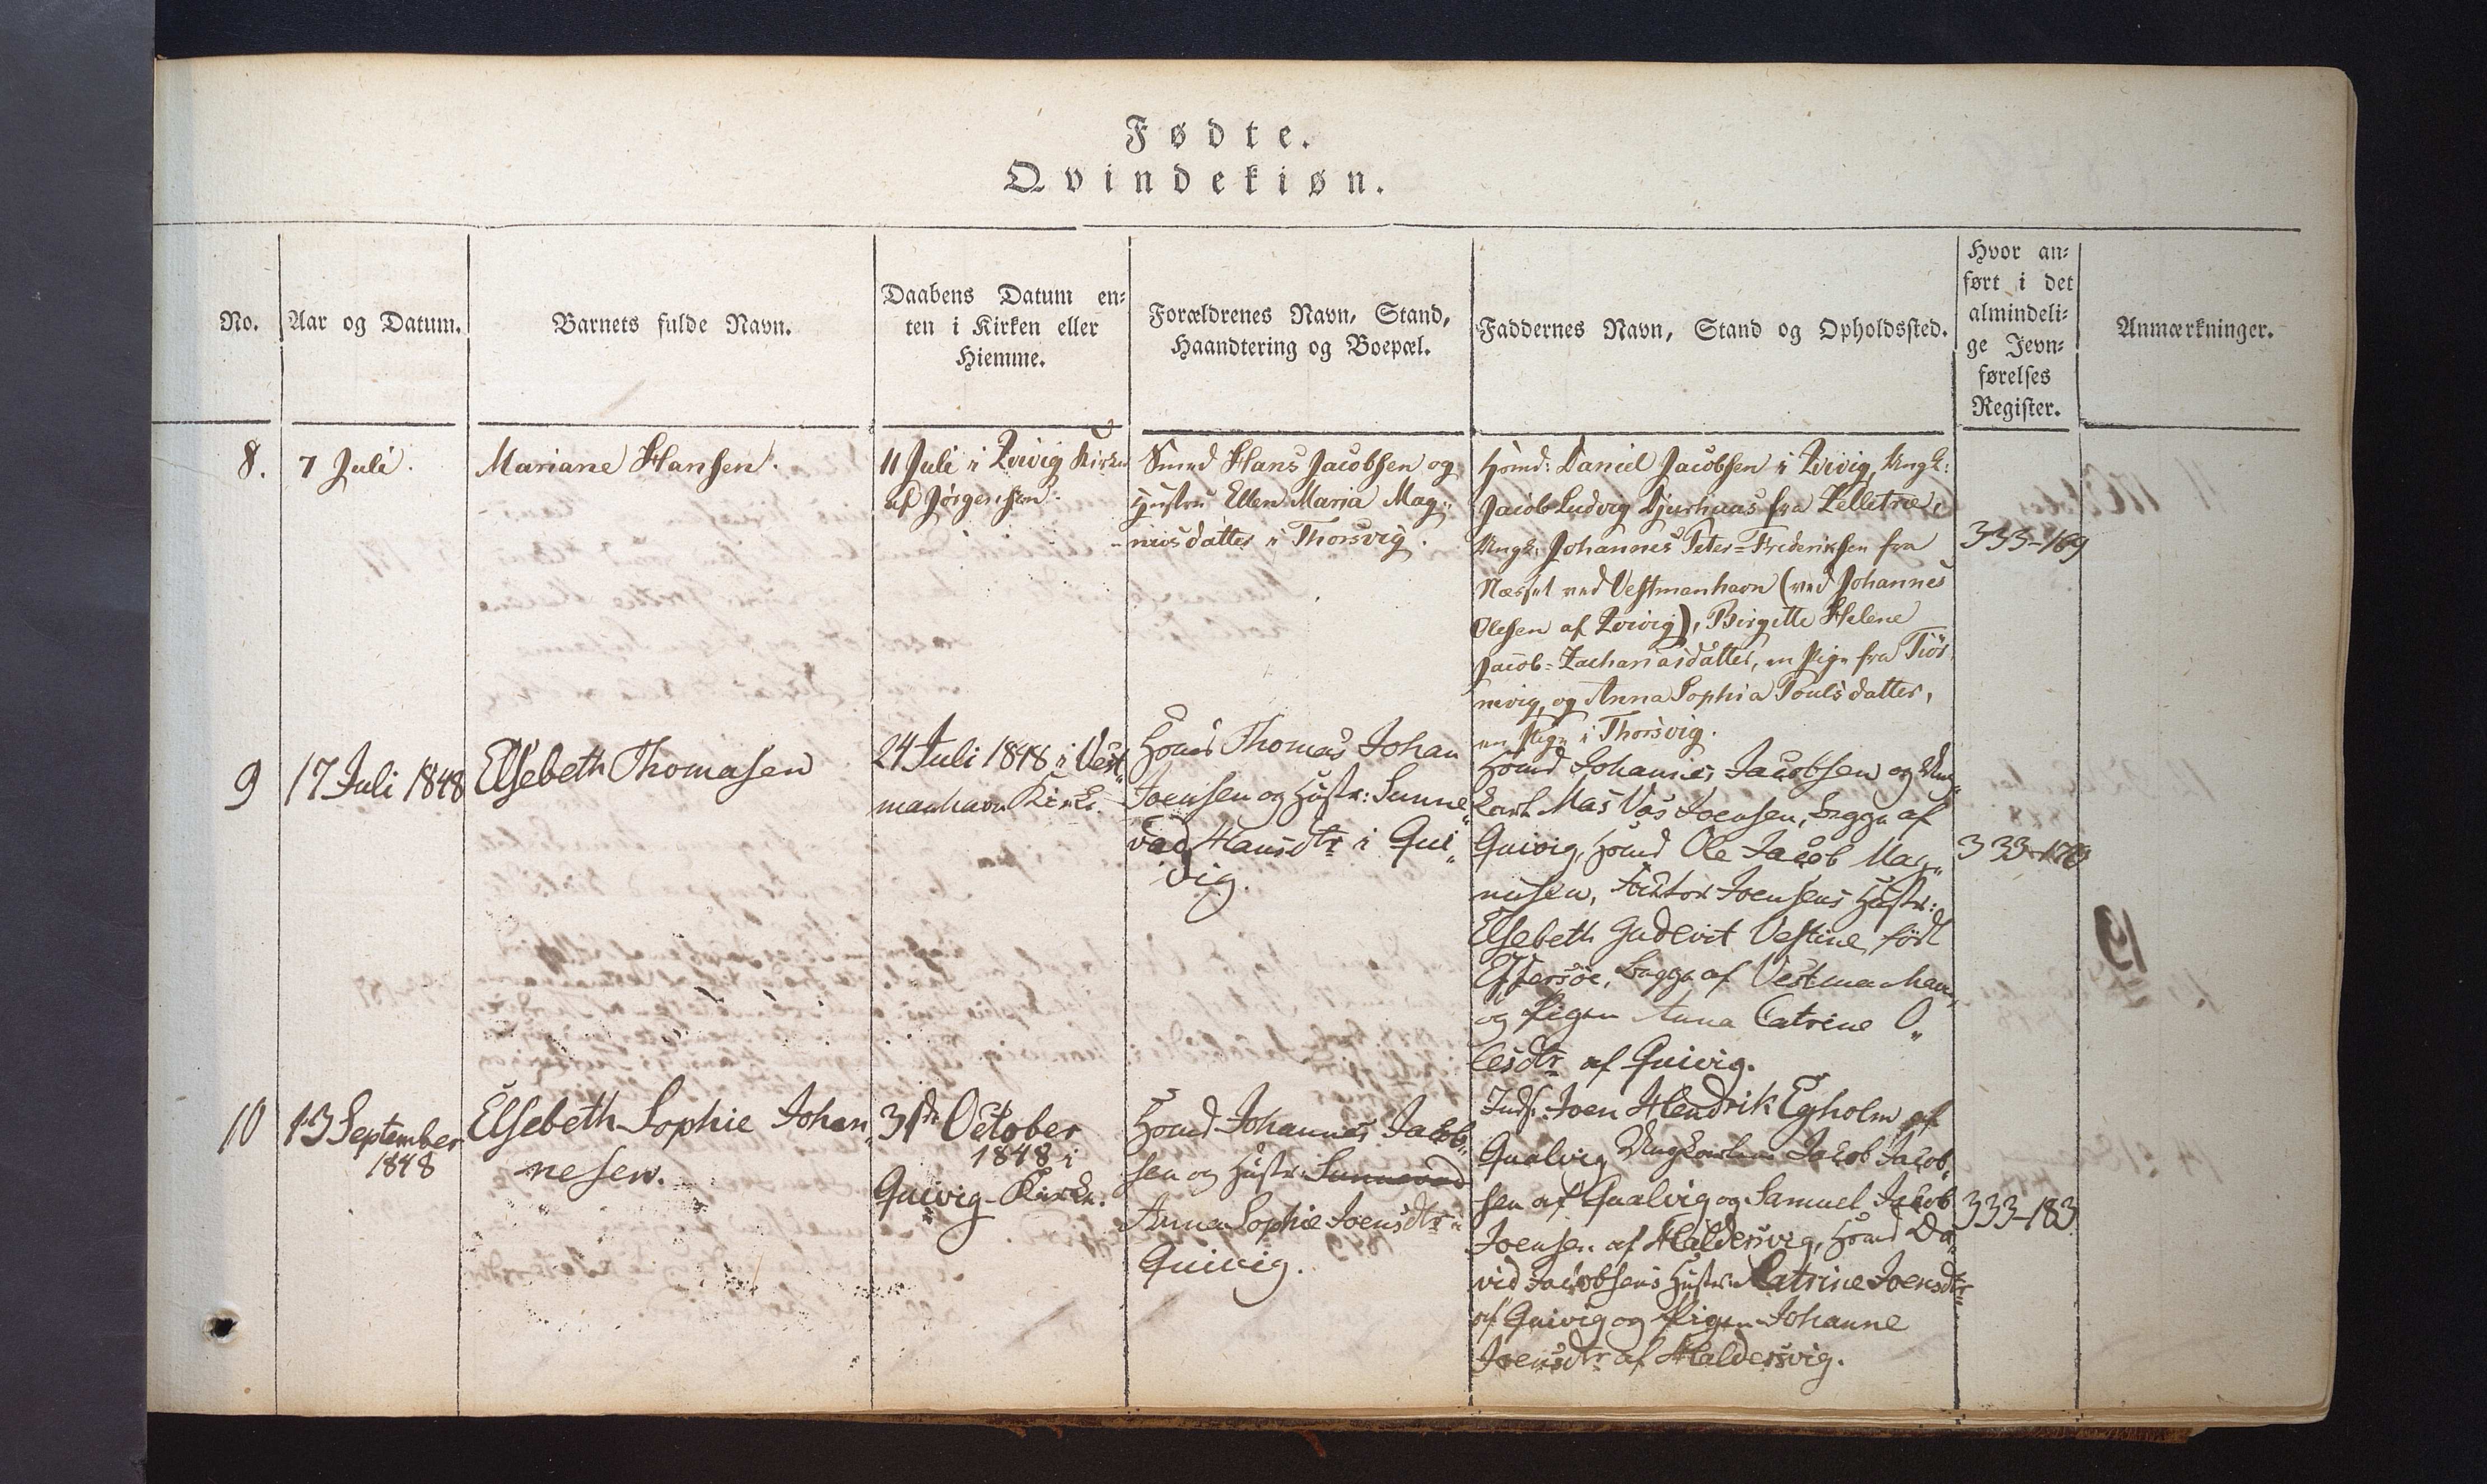 Fødte.
Qvindekiøn.
No.
Aar og Datum.
Barnets fulde Navn.
Daabens Datum en-
ten i Kirken eller
Hiemme.
Forældrenes Navn, Stand,
Haandtering og Boepæl.
Faddernes Navn, Stand og Opholdssted.
Hvor an-
ført i det
almindeli-
ge Jevn-
førelses
Register.
Anmærkninger.
8.
7 Juli.
Mariane Hansen.
11 Juli i Qvivig Kirke
af Jørgensen.
Smed Hans Jacobsen og
Hustru Ellen Maria Mag-
nusdatter i Thorsvig.
Hosmd: Daniel Jacobsen i Qvivig, Ungk:
Jacob Ludvig Djurhuus fra Zelletræ,
Ungk: Johannes Peter-Frederiksen fra
Næsset ved Vestmanhavn (ved Johannes
Olesen af Qvivig), Birgitte Helene
Jacob-Zachariasdatter, en Pige fra Tiör-
nevig, og Anna Sophia Poulsdatter,
en Pige i Thorsvig.
333-169
9
17 Juli 1848
Elsebeth Thomasen
24 Juli 1848 i Vest-
manhavn Kirke.
Thomas Johan
Joensen og Hustr: Sunne-
vad Hansdtr i Qui-
vig.
Hosmd Johannes Jacobsen og Ung-
karl Mas Vas Joensen, begge af
Quivig, Hosmd Ole Jacob Mag-
nusen, Joensens Hustr:
Elsebeth Vestine, født
Effersöe, begge af Vestmanhavn,
og Pigen Anna Catrine O-
lesdtr af Quivig.
333-170
10
13 September
1848
Elsebeth Sophie Johan-
nesen.
31te October
1848 i
Quivig Kirke.
Hosmd Johannes Jacob-
sen og Hustr: Sunnevad
Anna Sophie Joensdtr i
Quivig.
Inds. Joen Hendrik Egholm af
Qualvig Ungkarlene Jacob Jacob-
sen af Qualvig og Samuel Jacob
Joensen af Haldersvig, Hosmd Da-
vid Jacobsens Hustr: Catrine Joensdtr
af Quivig og Pigen Johanne
Joensdtr af Haldersvig.
333-183